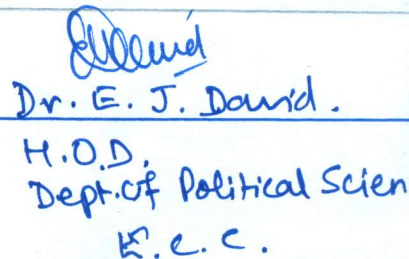 Dr. E. J. David.
H.O.D.
Dept. of Political Scien
E. C. C.